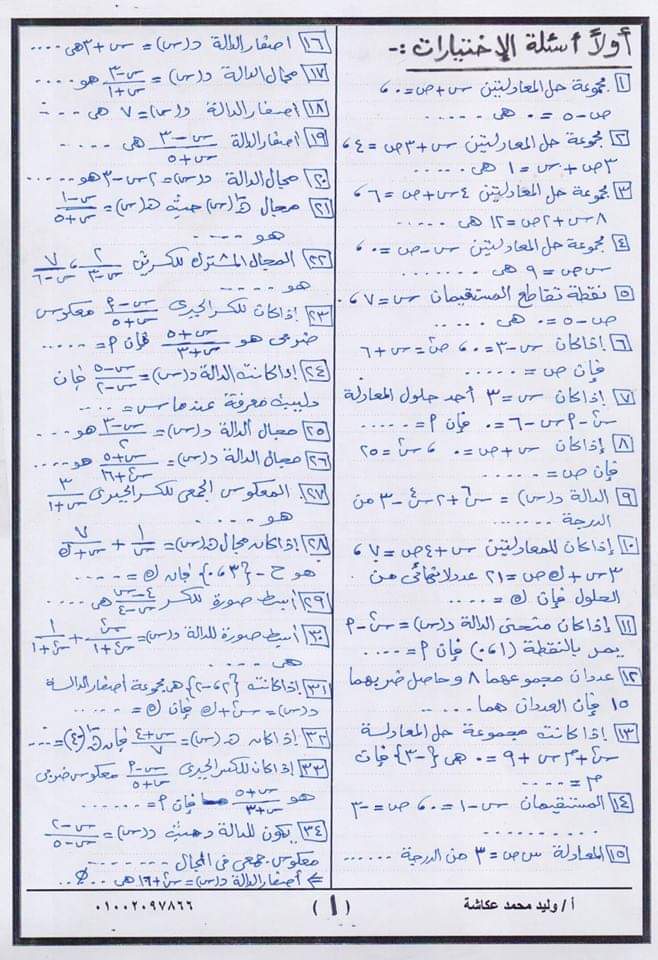 أولاً أسئلة الإختيارات :-
١ مجموعة حل المعادلتين س + ص = ٠ ،
ص - ٥ = ٠ هى .....
٢ مجموعة حل المعادلتين س + ٣ص = ٤ ،
٣ص + س = ١ هى .....
٣ مجموعة حل المعادلتين ٤س + ص = ٦ ،
٨س + ٢ص = ١٢ هى .....
٤ مجموعة حل المعادلتين س - ص = ٠ ،
س ص = ٩ هى .....
٥ نقطة تقاطع المستقيمان س = ٧ ،
ص - ٥ = ٠ هى .....
٦ إذا كان س - ٣ = ٠ ، ص² = س + ٦
فإن ص = .....
٧ إذا كان س = ٣ أحد حلول المعادلة
س² - م س - ٦ = ٠ فإن م = .....
٨ إذا كان س + ص = ٠ ، س² = ٢٥
فإن ص = .....
٩ الدالة د(س) = س٦ + ٢س٤ - ٣ من
الدرجة .....
١٠ إذا كان للمعادلتين س + ٤ص = ٧ ،
٣س + ك ص = ٢١ عدد لا نهائى من
الحلول فإن ك = ....
١١ إذا كان منحنى الدالة د(س) = س² - م
يمر بالنقطة (١،٠) فإن م = ....
١٢ عددان مجموعهما ٨ وحاصل ضربهما
١٥ فإن العددان هما .....
١٣ إذا كانت مجموعة حل المعادلة
س² + م س + ٩ = ٠ هى {-٣} فإن
م = ....
١٤ المستقيمان س - ١ = ٠ ، ص = -٣
..........
١٥ المعادلة س ص = ٣ من الدرجة ......
١٦ اصفار الدالة د(س) = س + ٣ هى ....
١٧ مجال الدالة د(س) = س-٣/س+١ هو ....
١٨ أصفار الدالة د(س) = ٧ هى ....
١٩ أصفار الدالة س-٣/س+٥ هى .....
٢٠ مجال الدالة د(س) = ٢س - ٣ هو .....
٢١ مجال ن⁻¹(س) حيث ن(س) = س-١/س+٥
هو ....
٢٢ المجال المشترك للكسرين ٢/س-٣ ، ٧/س-٦
هو .....
٢٣ إذا كان للكسر الجبرى س-م/س+٥ معكوس
ضربى هو س+٥/س+٣ فإن م = .....
٢٤ إذا كانت الدالة د(س) = س-٥/س-٢ فإن
د ليست معرفة عندما س = ....
٢٥ مجال الدالة د(س) = س-٣/٢ هو ....
٢٦ مجال الدالة د(س) = س+٥/س²+١٦ هو ....
٢٧ المعكوس الجمعى للكسر الجبرى ٣/س+١
هو ....
٢٨ إذا كان مجال ن(س) = ١/س + ٧/س+ك
هو ح - {٣،٠} فإن ك = ....
٢٩ أبسط صورة للكسر ٤-س/س-٤ هى ....
٣٠ أبسط صورة للدالة د(س) = س²/س²+١ + ١/س²+١
هى ....
٣١ إذا كانت {٢،-٢} هى مجموعة أصفار الدالة
د(س) = س² + ك فإن ك = ....
٣٢ إذا كان ن(س) = س+٤/٧ فإن ن⁻¹(-٤) = ....
٣٣ إذا كان للكسر الجبرى س-م/س+٥ معكوس ضربى
هو س+٥/س+٣ فإن م = ......
٣٤ يكون للدالة د حيث د(س) = س-٢/س-٥
معكوس جمعى فى المجال ......
* أصفار الدالة د(س) = س² + ١٦ هى ..∅..
أ / وليد محمد عكاشة
( ١ )
٠١٠٠٢٠٩٧٨٦٦